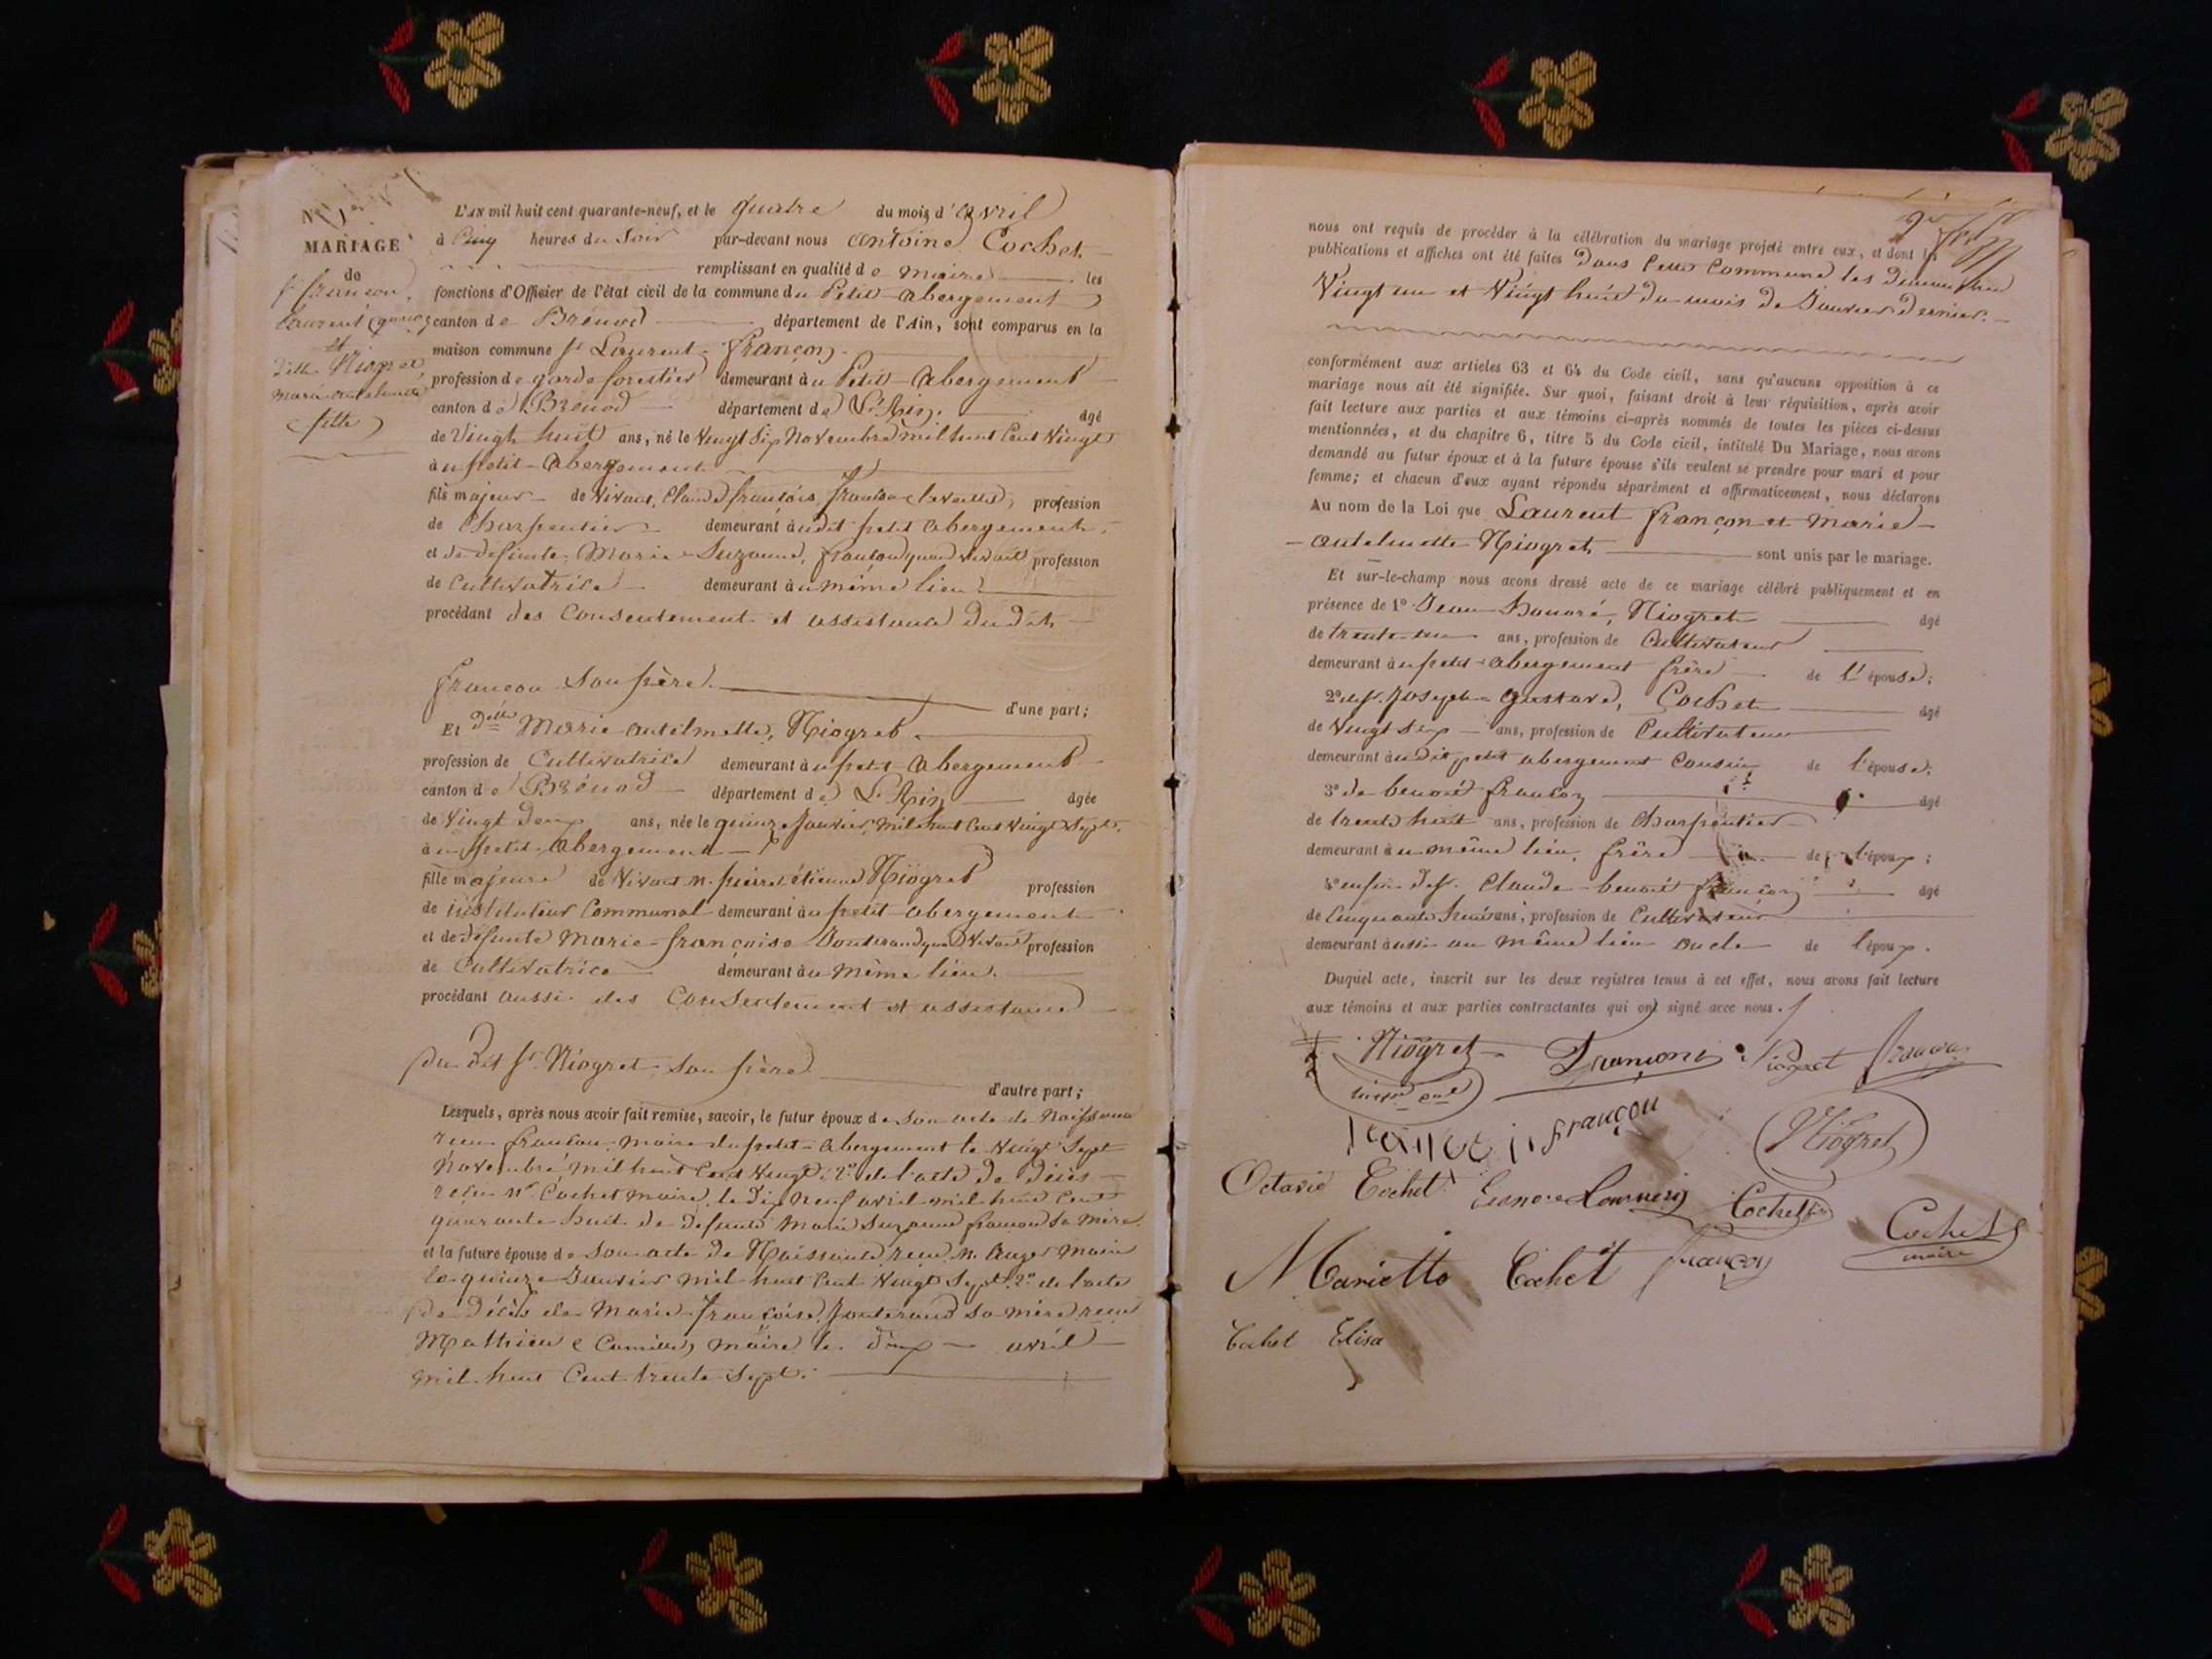 N° 1er
MARIAGE
de
sr françon,
Laurent garçon
et
Delle Niogret
marie antelmette
fille
L'AN mil huit cent quarante-neuf, et le quatre du mois d'avril
à Cinq heures du Soir par-devant nous antoine Cochet
remplissant en qualité de maire les
fonctions d'Officier de l'état civil de la commune du Petit-abergement
canton de Brénod département de l'Ain, sont comparus en la
maison commune sr Laurent françon
profession de garde forestier demeurant au Petit-abergement
canton de Brénod département de L'Ain. âgé
de Vingt huit ans, né le Vingt Six Novembre mil huit Cent Vingt
au petit-abergement
fils majeur de Vivant, Claude françois, françon, profession
de Charpentier demeurant audit petit abergement
et de defunte Marie Suzanne, françon quand vivait profession
de Cultivatrice demeurant au même lieu
procédant des Consentement et assistance du dit
françon Son père. d'une part;
Et Delle Marie antelmette, Niogret.
profession de Cultivatrice demeurant au petit-abergement
canton de Brénod département de L'Ain âgée
de Vingt deux ans, née le quinze Janvier, mil huit Cent Vingt Sept,
au petit-abergement
fille majeure de Vivant m. pierre étienne Niogret profession
de instituteur Communal demeurant au petit-abergement
et de défunte Marie-françoise Jouterand quand Vivait profession
de Cultivatrice demeurant au même lieu.
procédant aussi des Consentement et assistance
du dit sr Niogret son père d'autre part;
Lesquels, après nous avoir fait remise, savoir, le futur époux de Son acte de Naissance
reçu françon maire du petit-abergement le Vingt Sept
Novembre mil huit Cent Vingt. 2° de l'acte de décès
reçu Mr Cochet maire, le dix neuf avril mil huit Cent
quarante huit de defunte Marie Suzanne françon Sa mère.
et la future épouse de Son acte de Naissance, reçu M. Auger maire
le quinze Janvier mil huit Cent Vingt Sept. 2° de l'acte
de Décès de Marie-françoise Jouterand sa mère, reçu
Mathieu Camille, maire le deux avril
mil huit Cent trente Sept.
nous ont requis de procéder à la célébration du mariage projeté entre eux, et dont les
publications et affiches ont été faites dans cette Commune les dimanches
Vingt un et Vingt huit du mois de Janvier dernier.
conformément aux articles 63 et 64 du Code civil, sans qu'aucune opposition à ce
mariage nous ait été signifiée. Sur quoi, faisant droit à leur réquisition, après avoir
fait lecture aux parties et aux témoins ci-après nommés de toutes les pièces ci-dessus
mentionnées, et du chapitre 6, titre 5 du Code civil, intitulé Du Mariage, nous avons
demandé au futur époux et à la future épouse s'ils veulent se prendre pour mari et pour
femme; et chacun d'eux ayant répondu séparément et affirmativement, nous déclarons
Au nom de la Loi que Laurent françon et Marie
antelmette Niogret sont unis par le mariage.
Et sur-le-champ nous avons dressé acte de ce mariage célébré publiquement et en
présence de 1° Jean Honoré, Niogret âgé
de trente un ans, profession de Cultivateur
demeurant au petit-abergement frère de L'épouse;
2° du sr Joseph Gustave, Cochet âgé
de Vingt Six ans, profession de Cultivateur
demeurant audit petit abergement Cousin de l'épouse;
3° de benoit françon âgé
de trente huit ans, profession de Charpentier
demeurant au même lieu, frère de l'époux;
4° enfin du sr Claude benoit françon âgé
de Cinquante huit ans, profession de Cultivateur
demeurant aussi au même lieu oncle de l'époux.
Duquel acte, inscrit sur les deux registres tenus à cet effet, nous avons fait lecture
aux témoins et aux parties contractantes qui ont signé avec nous.
Niogret françon Niogret françon
françon Niogret
Octavie Cochet Cochet
Marietto Cochet françon Cochet
maire
Cochet Elisa